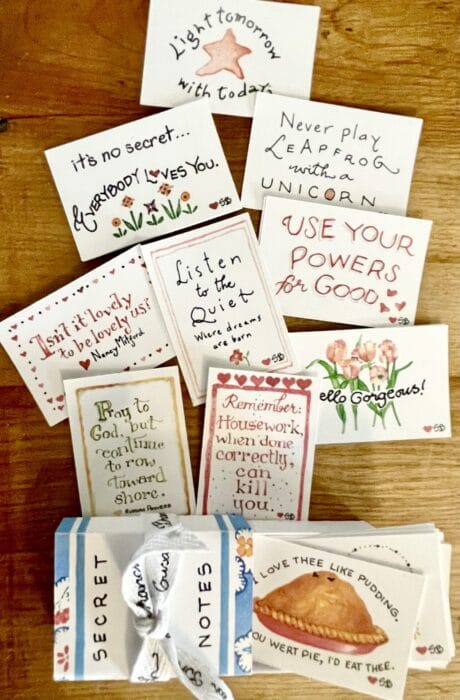 Light tomorrow
with today
it's no secret...
EVERYBODY LOVES YOU.
Never play
LEAPFROG
with a
UNICORN
USE YOUR
POWERS
for GOOD.
Listen
to the
Quiet
Where dreams
are born
Isn't it lovely
to be lovely us?
Nancy Mitford
ello Gorgeous!
Pray to
God, but
continue
to row
toward
shore.
RUSSIAN PROVERB
Remember:
Housework,
when done
correctly,
can
kill
you.
SECRET
NOTES
I LOVE THEE LIKE PUDDING.
OU WERT PIE, I'D EAT THEE.